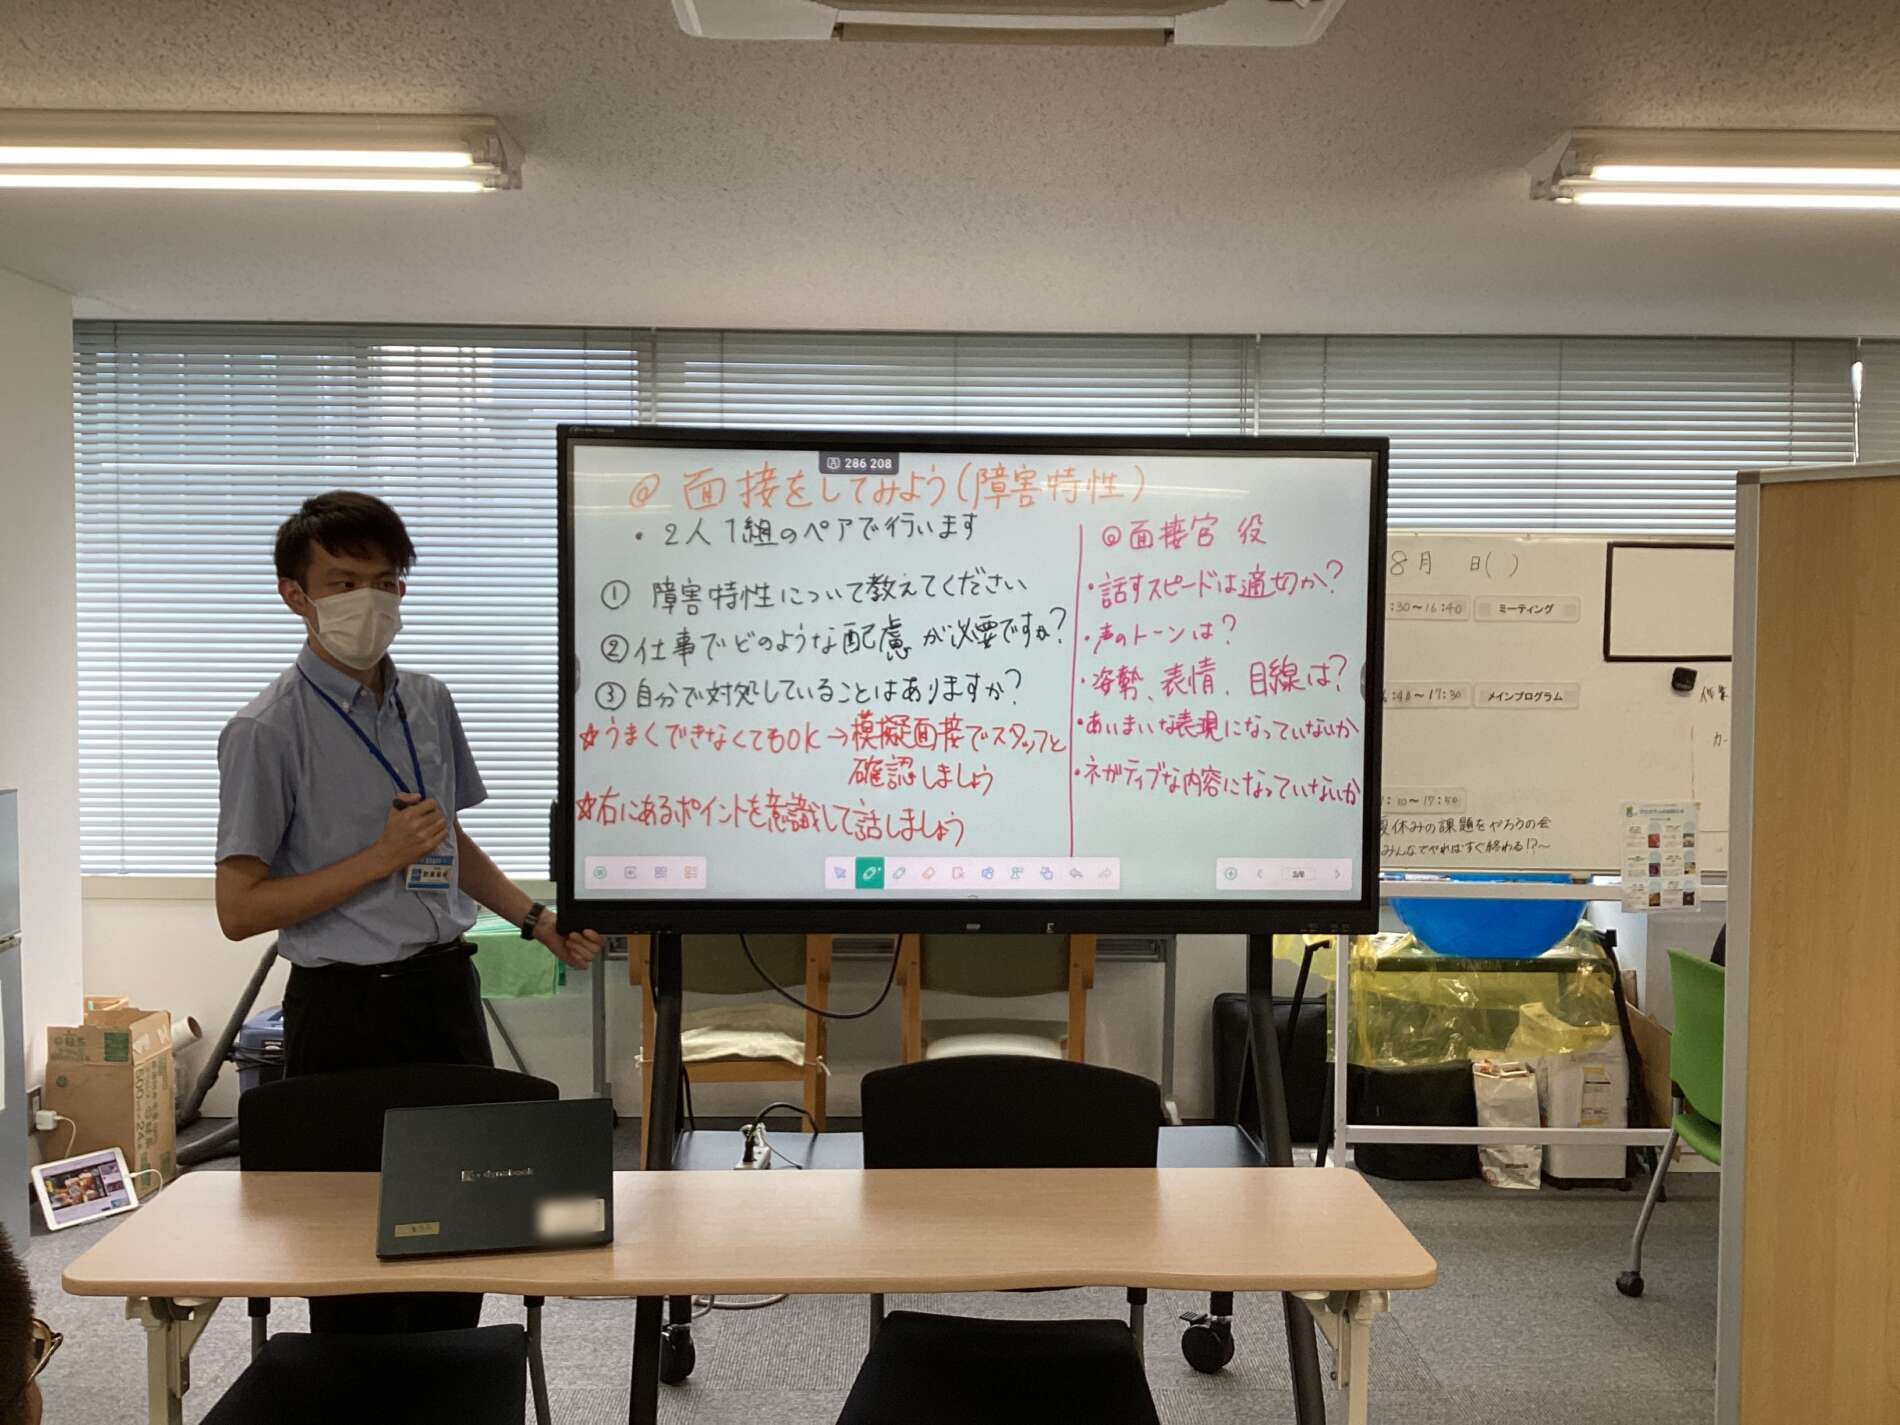 286 208
@ 面接をしてみよう(障害特性)
・2人1組のペアで行います
① 障害特性について教えてください
②仕事でどのような配慮が必要ですか?
③自分で対処していることはありますか?
☆うまくできなくてもOK→模擬面接でスタッフと
確認しましょう
☆右にあるポイントを意識して話しましょう
@面接官 役
・話すスピードは適切か?
・声のトーンは?
・姿勢、表情、目線は?
・あいまいな表現になっていないか
・ネガティブな内容になっていないか
8月 日( )
:30～16:40 ミーティング
～17:30 メインプログラム
:10～17:50
夏休みの課題をやろうの会
みんなでやればすぐ終わる!?～
dynabook